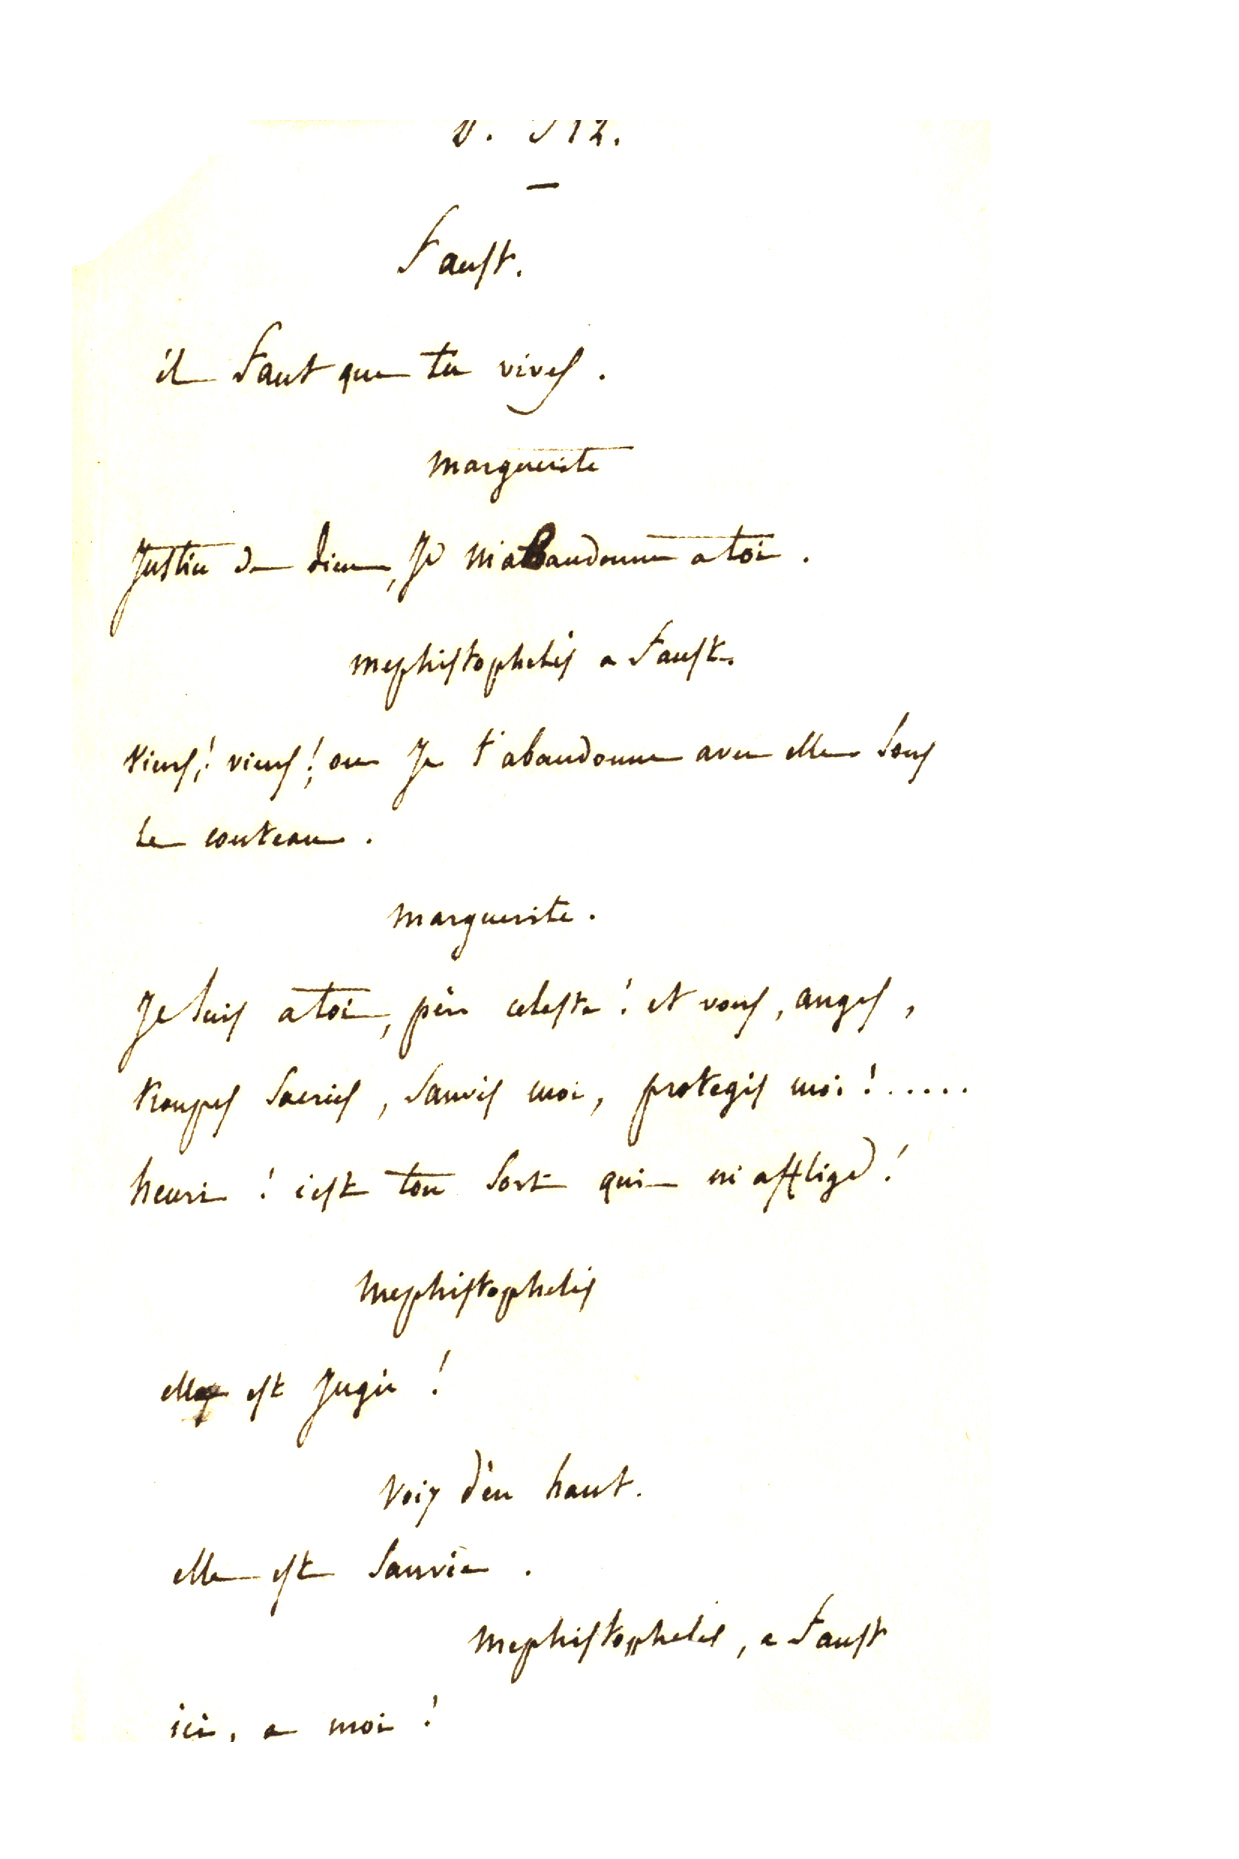 Faust.
il Faut que tu vives.
marguerite
Justice de dieu, Je m'abandonne a toi.
mephistopheles a Faust.
viens! viens! ou Je t'abandonne avec elle sous
le couteau.
marguerite.
Je suis a toi, père celeste! et vous, anges,
troupes sacrées, sauvés moi, protegés moi!.....
henri! c'est ton sort qui m'afflige!
Mephistophelés
elle est Jugée!
Voix d'en haut.
elle est sauvée.
Mephistopheles, a Faust
ici, a moi!